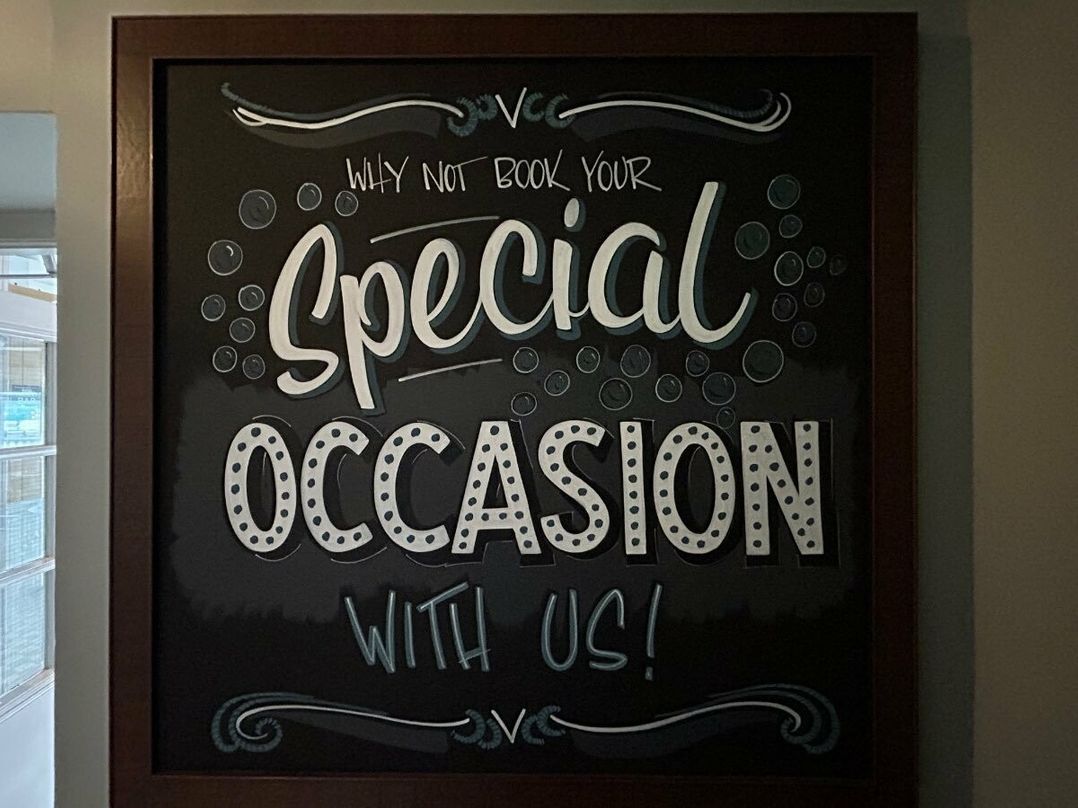 WHY NOT BOOK YOUR
Special
OCCASION
WITH US!